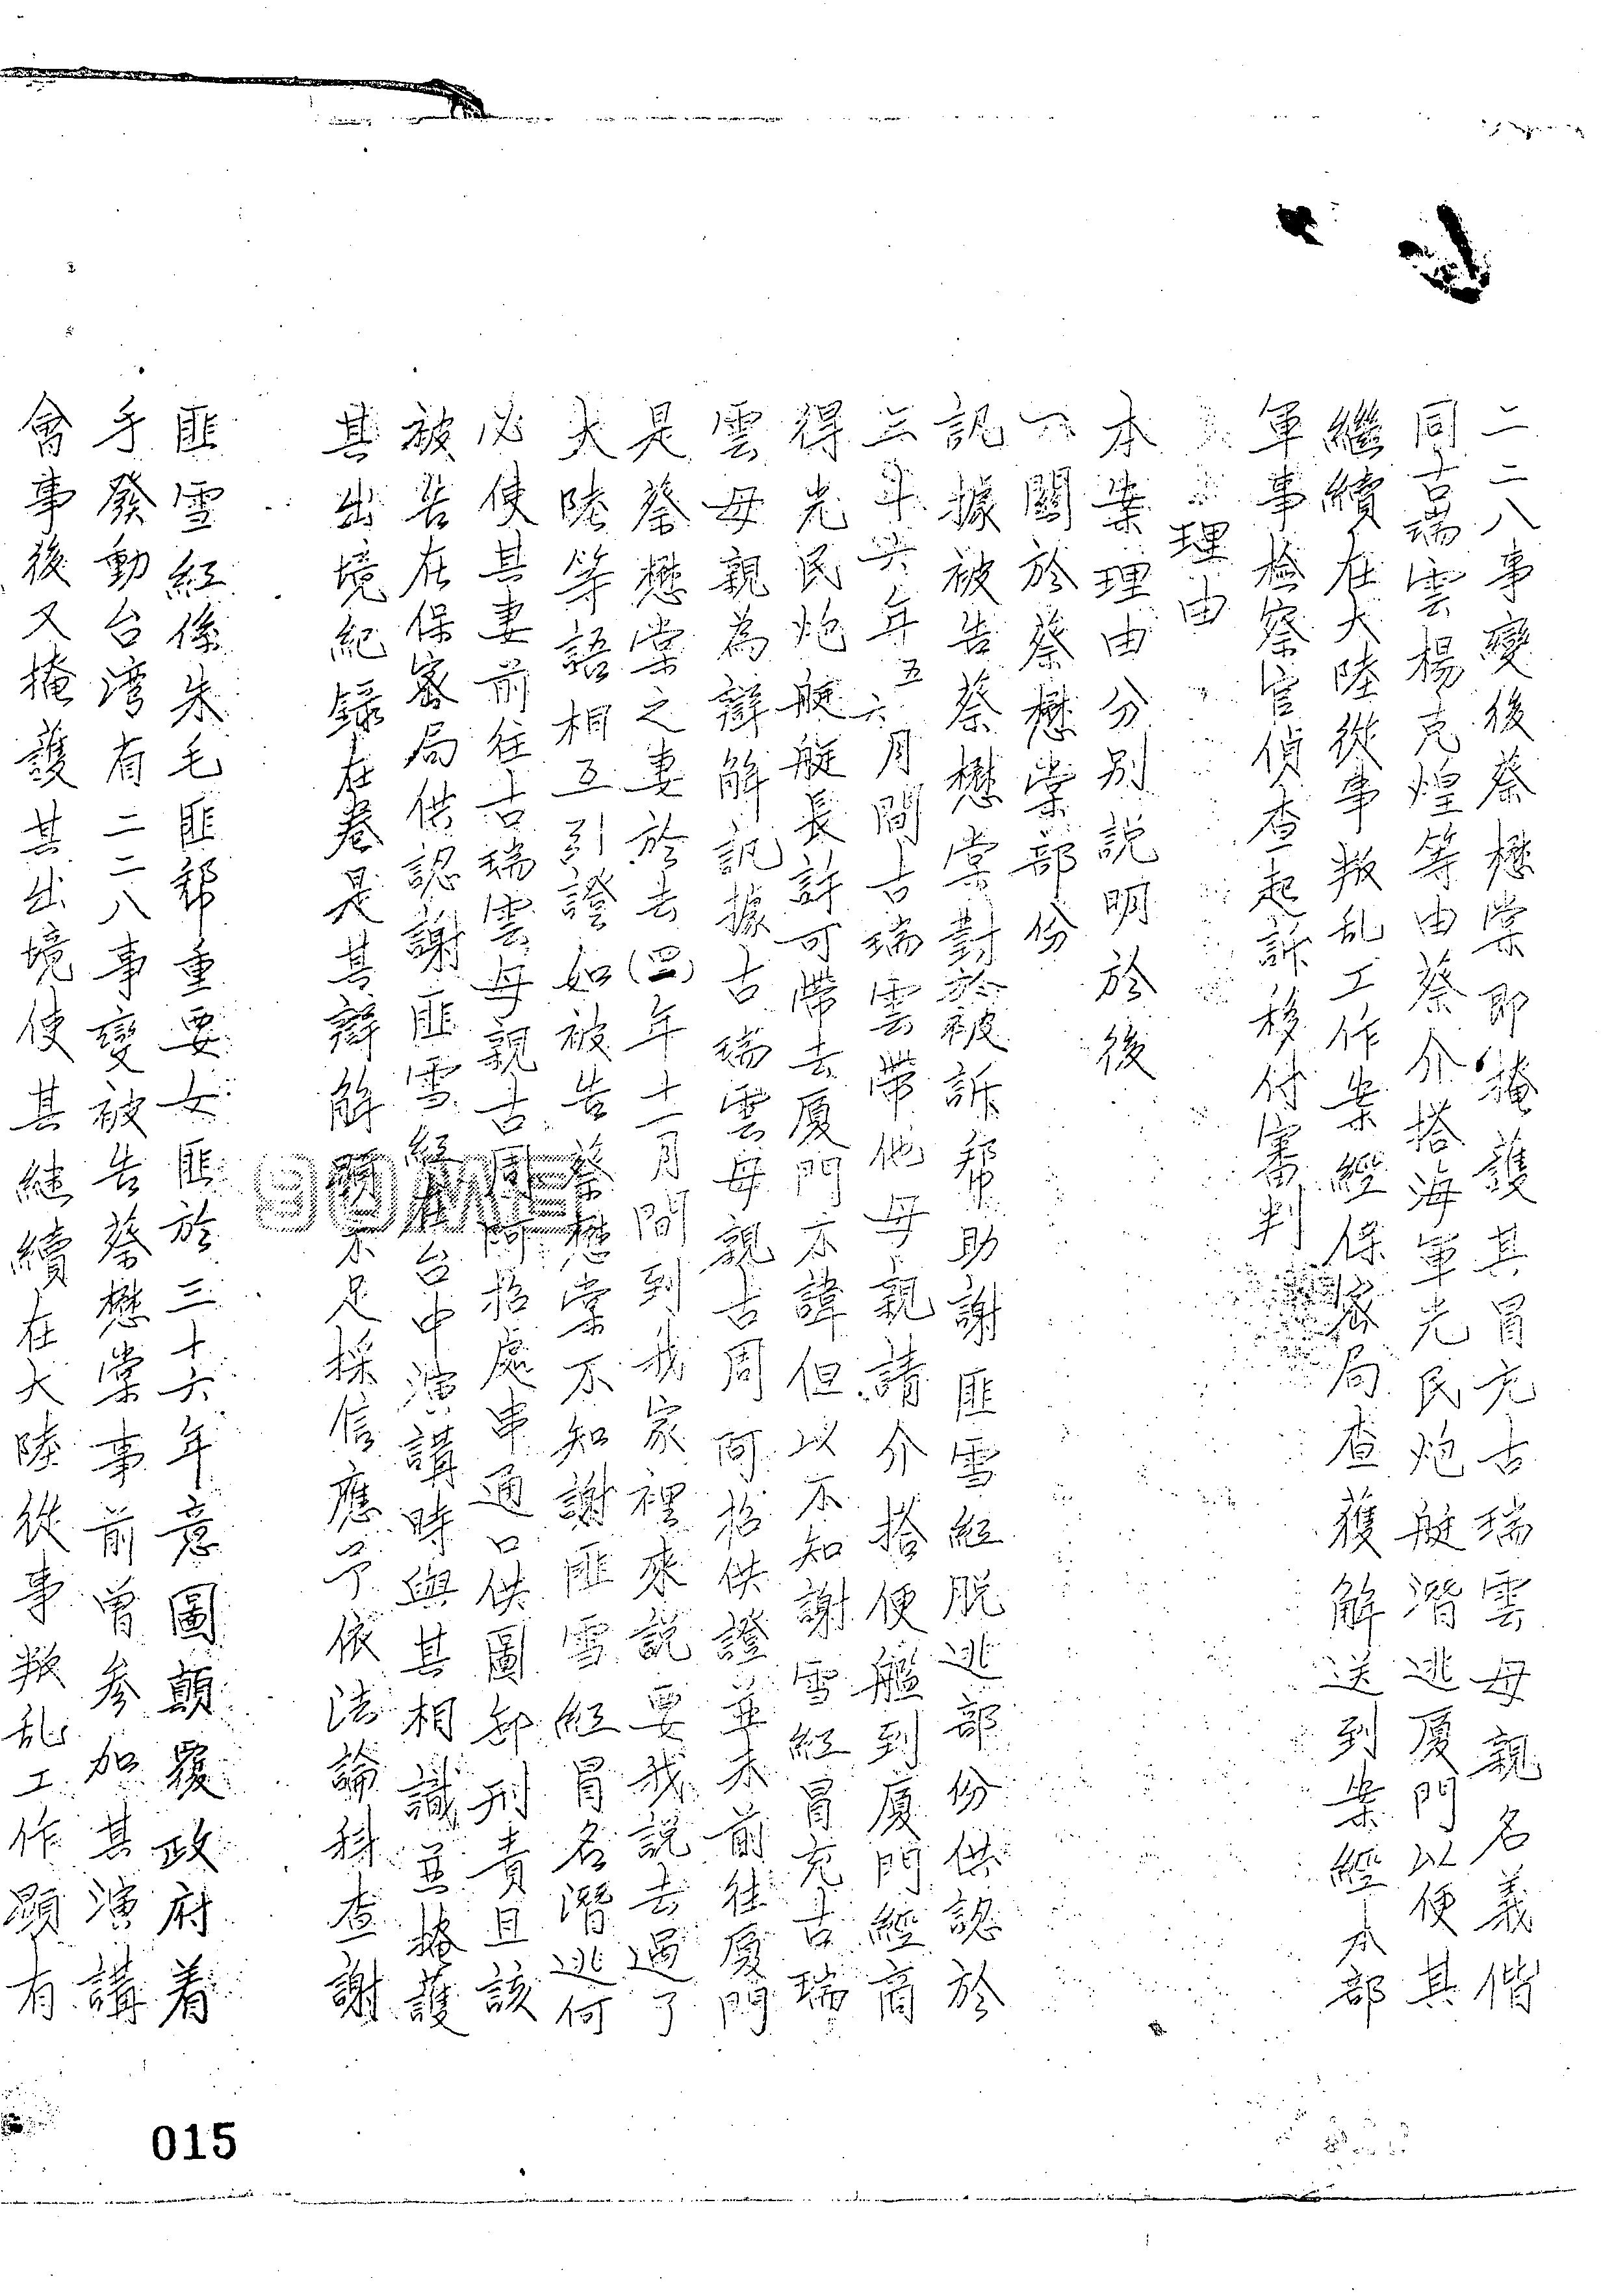 二二八事變後蔡懋棠即掩護其冒充古瑞雲母親名義偕
同古瑞雲楊克煌等由蔡介搭海軍光民炮艇潛逃厦門以便其
繼續在大陸從事叛乱工作案經保密局查獲解送到案經本部
軍事檢察官偵查起訴移付審判
理由
本案理由分別說明於後
一、關於蔡懋棠部份
訊據被告蔡懋棠對於被訴帮助謝匪雪紅脫逃部份供認於
三十六年五六月間古瑞雲帶他母親請介搭便艦到厦門經商
得光民炮艇艇長許可帶去厦門不諱但以不知謝雪紅冒充古瑞
雲母親為辯解訊據古瑞雲母親古周阿招供證並未前往厦門
是蔡懋棠之妻於去(四)年十一月間到我家裡來說要我說去過了
大陸等語相互引證如被告蔡懋棠不知謝匪雪紅冒名潛逃何
必使其妻前往古瑞雲母親古周阿招處串通口供圖卸刑責且該
被告在保密局供認謝匪雪紅在台中演講時與其相識並掩護
其出境紀錄在卷是其辯解顯不足採信應予依法論科查謝
匪雪紅係朱毛匪幫重要女匪於三十六年意圖顛覆政府着
手發動台湾有二二八事變被告蔡懋棠事前曾參加其演講
會事後又掩護其出境使其繼續在大陸從事叛乱工作顯有
015